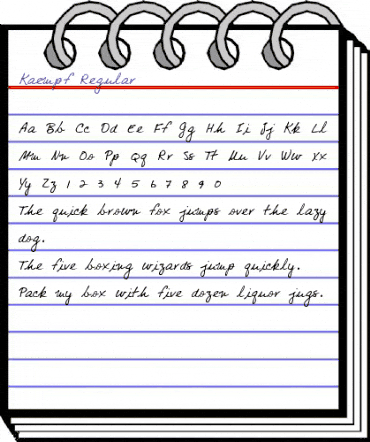 Kaempf Regular
Aa Bb Cc Dd Ee Ff Gg Hh Ii Jj Kk Ll
Mm Nn Oo Pp Qq Rr Ss Tt Uu Vv Ww Xx
Yy Zz 1 2 3 4 5 6 7 8 9 0
The quick brown fox jumps over the lazy
dog.
The five boxing wizards jump quickly.
Pack my box with five dozen liquor jugs.